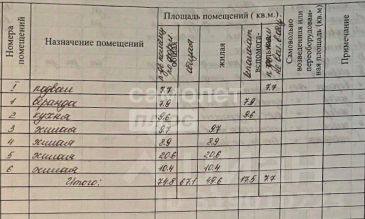 Номера помещений
Назначение помещений
Площадь помещений ( кв.м.)
общая
жилая
вспомога-
Самовольно возведенная или переоборудован-
ная площадь (кв.м)
Примечание
I подвал 7.7 7.7
1 веранда 7.9 7.9
2 кухня 9.6 9.6
3 жилая 9.7 9.7
4 жилая 8.9 8.9
5 жилая 20.6 20.6
6 жилая 10.4 10.4
Итого: 74.8 67.1 49.6 17.5 7.7
самолет
плюс